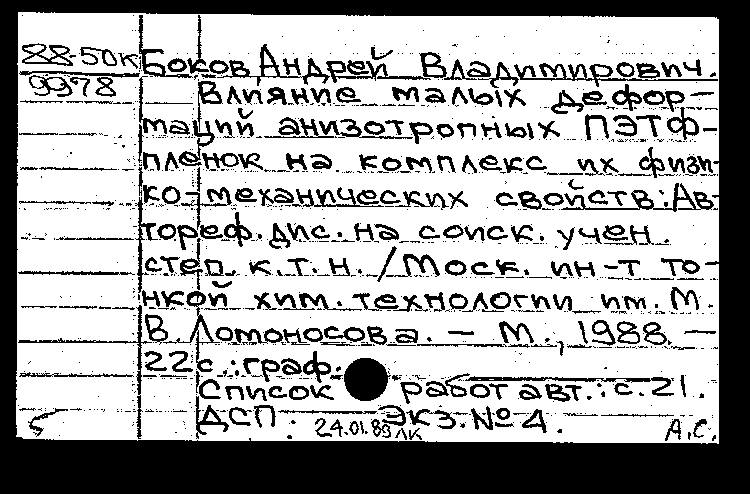 88-50к Боков, Андрей Владимирович.
9978 Влияние малых дефор-
маций анизотропных ПЭТФ-
пленок на комплекс их физи-
ко-механических свойств: Ав-
тореф. дис. на соиск. учен.
степ. к.т.н. / Моск. ин-т то-
нкой хим. технологии им. М.
В. Ломоносова. - М., 1988. -
22 с.: граф.
Список работ авт.: с. 21.
ДСП. Экз. № 4.
Б 24.01.89 ЛК А.С.